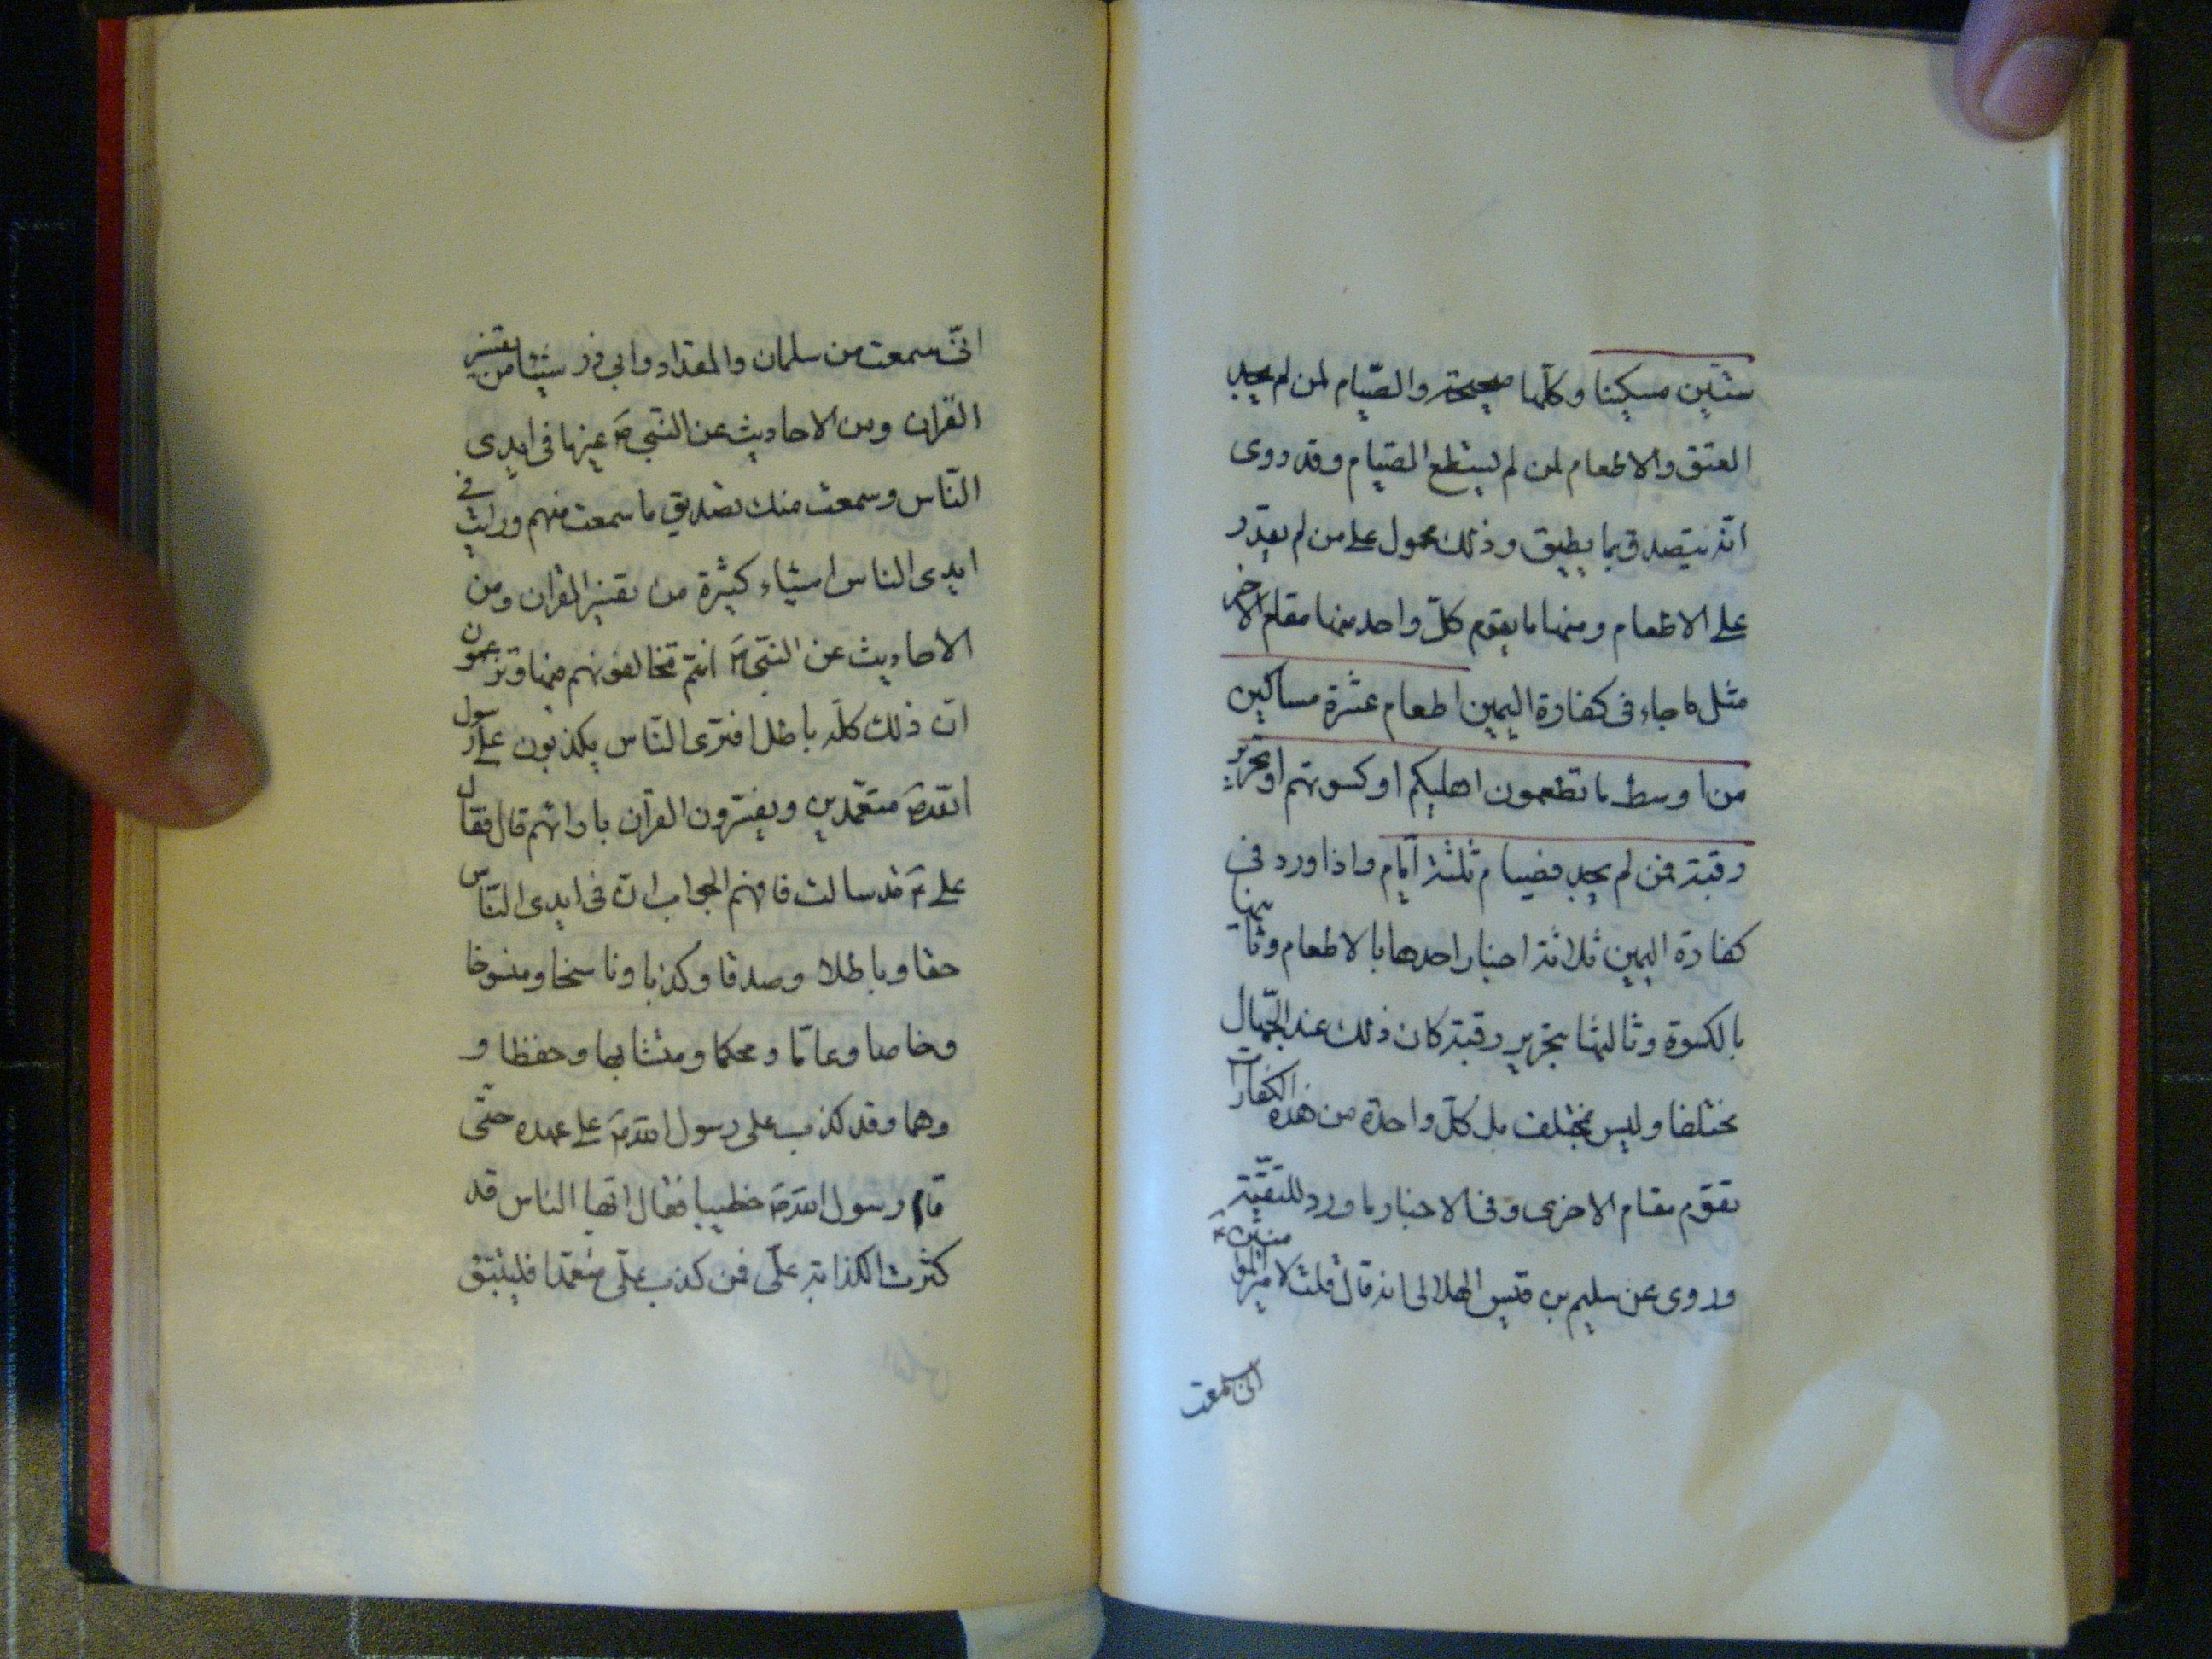 ستّين مسكينا وكلّها صحيحة والصّيام لمن لم يجد
العتق والاطعام لمن لم يستطع الصّيام وقد روى
انّه يتصدق بما يطيق وذلك محمول على من لم يقدر
على الاطعام ومنها ما يقوم كلّ واحد منها مقام الاخر
مثل ما جاء فى كفارة اليمين اطعام عشرة مساكين
من اوسط ما تطعمون اهليكم او كسوتهم او تحرير
رقبة فمن لم يجد فصيام ثلثة ايّام واذا ورد فى
كفارة اليمين ثلاثة اخبار احدها بالاطعام وثانيها
بالكسوة وثالثها بتحرير رقبة كان ذلك عند الجّهال
مختلفا وليس بمختلف بل كلّ واحدة من هذه الكفارات
تقوم مقام الاخرى وفى الاخبار ما ورد للتقيّة
وروى عن سليم بن قيس الهلالى انه قال قلت لامير المؤمنين ع
انى سمعت
انّى سمعت من سلمان والمقداد وابى ذر شيئا من تفسير
القران ومن الاحاديث عن النّبى ص غيرما فى ايدى
النّاس وسمعت منك تصديق ما سمعت منهم ورايت فى
ايدى الناس اشياء كثيرة من تفسير القران ومن
الاحاديث عن النّبى ص انتم تخالفونهم فيها وتزعمون
انّ ذلك كلّه باطل افترى النّاس يكذبون على رسول
الله ص متعمّدين ويفسّرون القران بارائهم قال فقال
على ع قد سالت فافهم الجواب انّ فى ايدى النّاس
حقا وباطلا وصدقا وكذبا وناسخا ومنسوخا
وخاصا وعامّا ومحكما ومتشابها وحفظا و
وهما وقد كذب على رسول الله ص على عهده حتّى
قام رسول الله ص خطيبا فقال ايّها الناس قد
كثرت الكذابة علىّ فمن كذب علىّ متعمّدا فليتبوّء